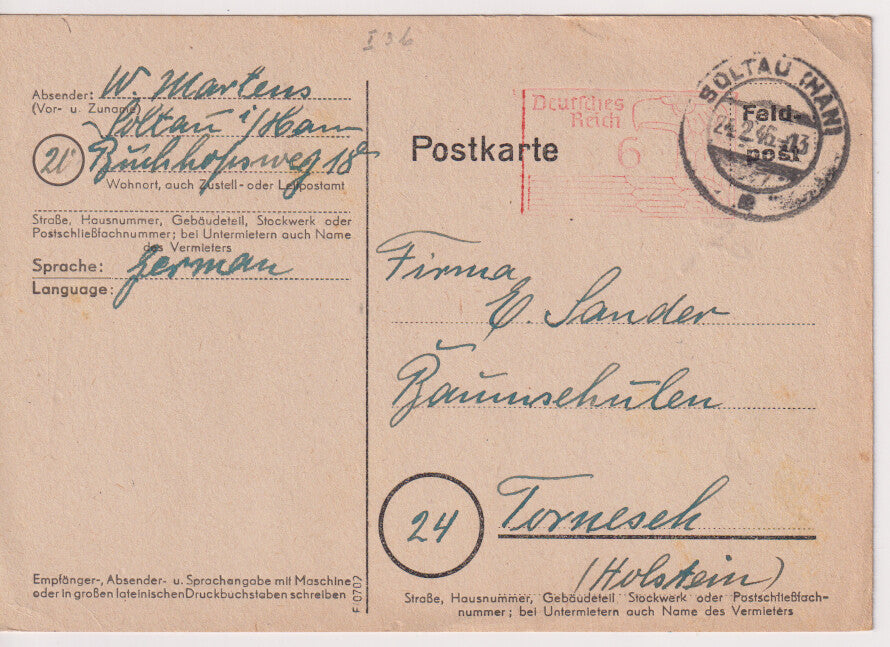 I 36
Absender: W. Martens
(Vor- u. Zuname)
Soltau i/Han
20 Buchhopsweg 18a
Wohnort, auch Zustell- oder Leitpostamt
Straße, Hausnummer, Gebäudeteil, Stockwerk oder
Postschließfachnummer; bei Untermietern auch Name
des Vermieters
Sprache: German
Language:
Empfänger-, Absender- u. Sprachangabe mit Maschine
oder in großen lateinischen Druckbuchstaben schreiben
F/0707
Postkarte
Deutsches
Reich
6
SOLTAU (HAN)
Feld-
24.2.46.-13
post
Firma
E. Sander
Baumschulen
24 Tornesch
(Holstein)
Straße, Hausnummer, Gebäudeteil, Stockwerk oder Postschließfach-
nummer; bei Untermietern auch Name des Vermieters